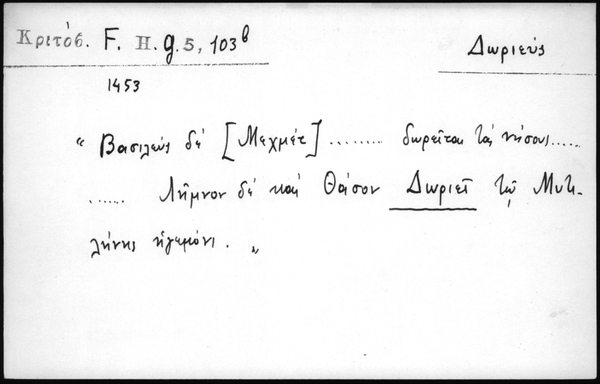 Κριτόβ. F. H. g. 5, 103b
Δωριεύς
1453
" Βασιλεύς δέ [Μεχμέτ] ......... δωρεῖται τάς νήσους .....
...... Λῆμνον δέ καί Θάσον Δωριεῖ τῷ Μυτι-
λήνης ἡγεμόνι. "